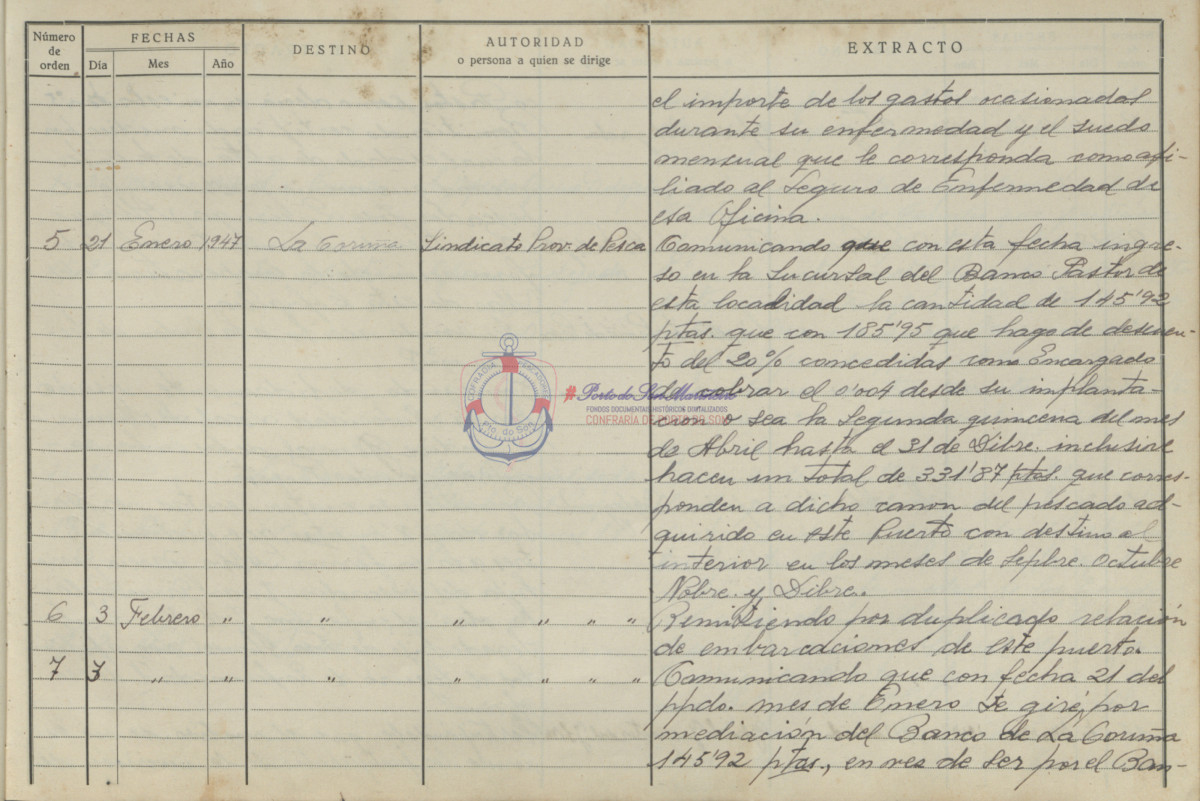 Número de orden
FECHAS
Día
Mes
Año
DESTINO
AUTORIDAD
o persona a quien se dirige
EXTRACTO
el importe de los gastos ocasionadas
durante su enfermedad y el suedo
mensual que le corresponda como afi-
liado al Seguro de Enfermedad de
esa Oficina.
5 21 Enero 1947 La Coruña Sindicato Prov. de Pesca Comunicando que con esta fecha ingre-
so en la Sucursal del Banco Pastor de
esta localidad la cantidad de 145'92
ptas. que con 185'95 que hago de descuen-
to del 20% concedidas como Encargado
de cobrar el 0'004 desde su implanta-
cion o sea la segunda quincena del mes
de Abril hasta el 31 de Dibre. inclusive
hacen un total de 331'87 ptas. que corres-
ponden a dicho canon del pescado ad-
quirido en este Puerto con destino al
interior en los meses de Sepbre. Octubre
Nobre. y Dibre.
6 3 Febrero " " " " " " Remitiendo por duplicado relación
de embarcaciones de este puerto.
7 7 " " " " " " " Comunicando que con fecha 21 del
ppdo. mes de Enero le giré, por
mediación del Banco de La Coruña
145'92 ptas., en ves de ser por el Ban-
COFRADIA PESCADORES
Pto. do Son
#Porto do Son Mariñeiro
FONDOS DOCUMENTAIS HISTÓRICOS DIXITALIZADOS
CONFRARÍA DE PORTO DO SON